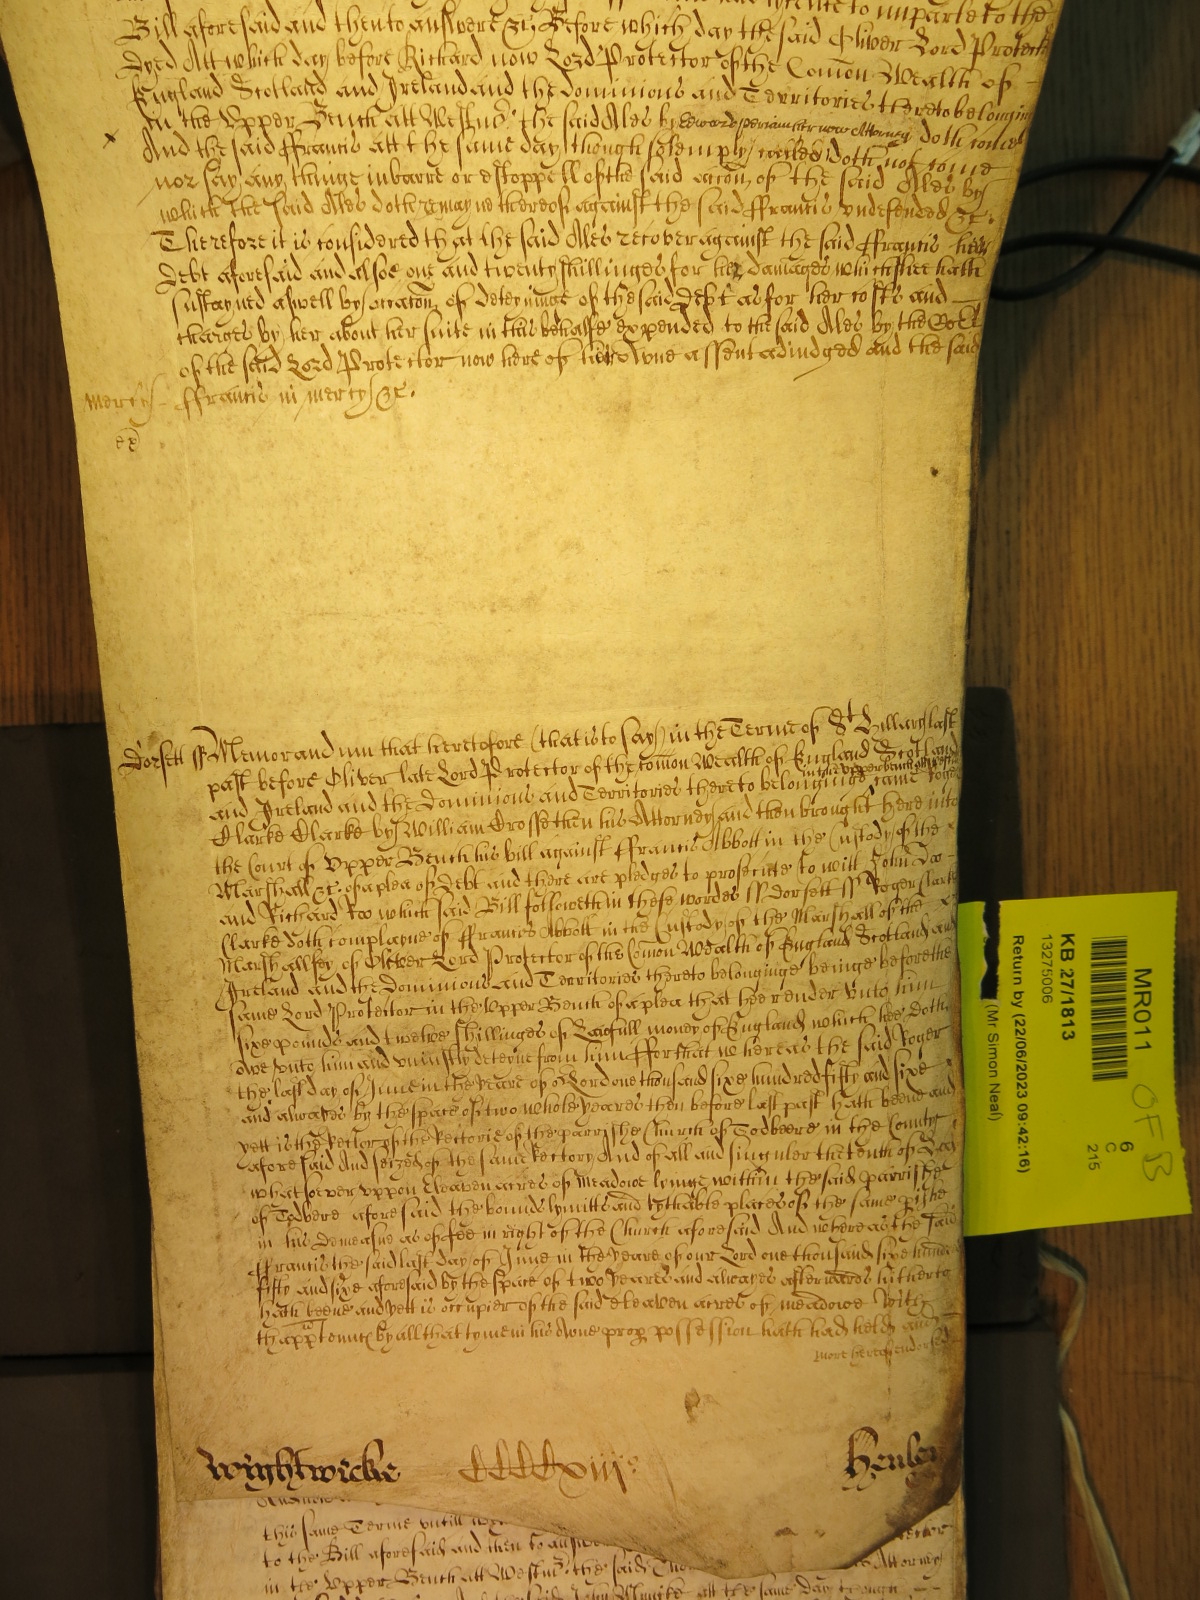 Bill aforesaid and then to answere &c: Before which day the said Oliver Lord Protector
dyed Att which day before Richard now Lord Protector of the Com̄on Wealth of
England Scotland and Ireland and the dominions and Territories thereto belonging
in the Upper Bench att Westm̄r the said Ales by Edward now Attorney doth come
And the said ffrancis att the same day though solemply called doth not come
nor say any thinge in barre or estoppell of the said accon̄ of the said Ales by
which the said Ales doth remayne thereof against the said ffrancis undefended &c:
Therefore it is considered that the said Ales recover against the said ffrancis her
debt aforesaid and alsoe one and twenty shillinges for her damages which shee hath
sustayned aswell by occation of deteyninge of the said debt as for her costs and
charges by her about her suite in this behalfe expended to the said Ales by the Court
of the said Lord Protector now here of her owne assent adiudged and the said
Mercy ffrancis in mercy &c.
Dorsett ss Memorandum that heretofore (that is to say) in the Terme of St Hillary last
past before Oliver late Lord Protector of the Com̄on Wealth of England Scotland
and Ireland and the Dominions and Territories thereto belonginge in the upper bench came Roger
Clarke Clarke by William Crosse then his Attorney and then brought here into
the Court of Upper Bench his bill against ffrancis Abbott in the Custody of the
Marshall &c: of a plea of Debt and there are pledges to prosecute to witt John Doo
and Richard Roo which said Bill followeth in these wordes ss Dorsett ss Roger Clarke
Clarke doth complayne of ffrancis Abbott in the Custody of the Marshall of the
Marshallsey of Oliver Lord Protector of the Com̄on Wealth of England Scotland and
Ireland and the Dominions and Territories thereto belonginge beinge before the
same Lord Protector in the Upper Bench of a plea that hee render unto him
sixe pounds and twelve shillinges of Lawfull money of England which hee doth
owe unto him and uniustly deteyne from him ffor that whereas the said Roger
the last day of June in the yeare of or Lord one thousand sixe hundred fifty and sixe
and alwayes by the space of two whole yeares then before last past hath beene and
yett is the Rector of the Rectorie of the parrishe Church of Todbeere in the County
aforesaid And seized of the same Rectory And of all and singuler the tenth of hay
whatsoever uppon Eleaven acres of Meadowe lyinge within the said parrishe
of Todbere aforesaid the bounds lymitts and tythable places of the same pishe
in his Demeasne as of fee in right of the Church aforesaid And whereas the said
ffrancis the said last day of June in the yeare of our Lord one thousand sixe hundred
fifty and sixe aforesaid by the space of two yeares and alwayes afterwards hitherto
hath beene and yett is occupier of the said eleaven acres of meadowe with
thapptennc by all that tyme in his owne prop possession hath had held and
more hereof endorsed
Wightwicke CCCCxiij: Henley
this same Terme untill
to the Bill aforesaid and then to answere
in the Upper Bench att Westm̄r the said Attorney
said John att the same day though
MR011
OF B
KB 27/1813
13275006
6
C
215
Return by (22/06/2023 09:42:16)
(Mr Simon Neal)